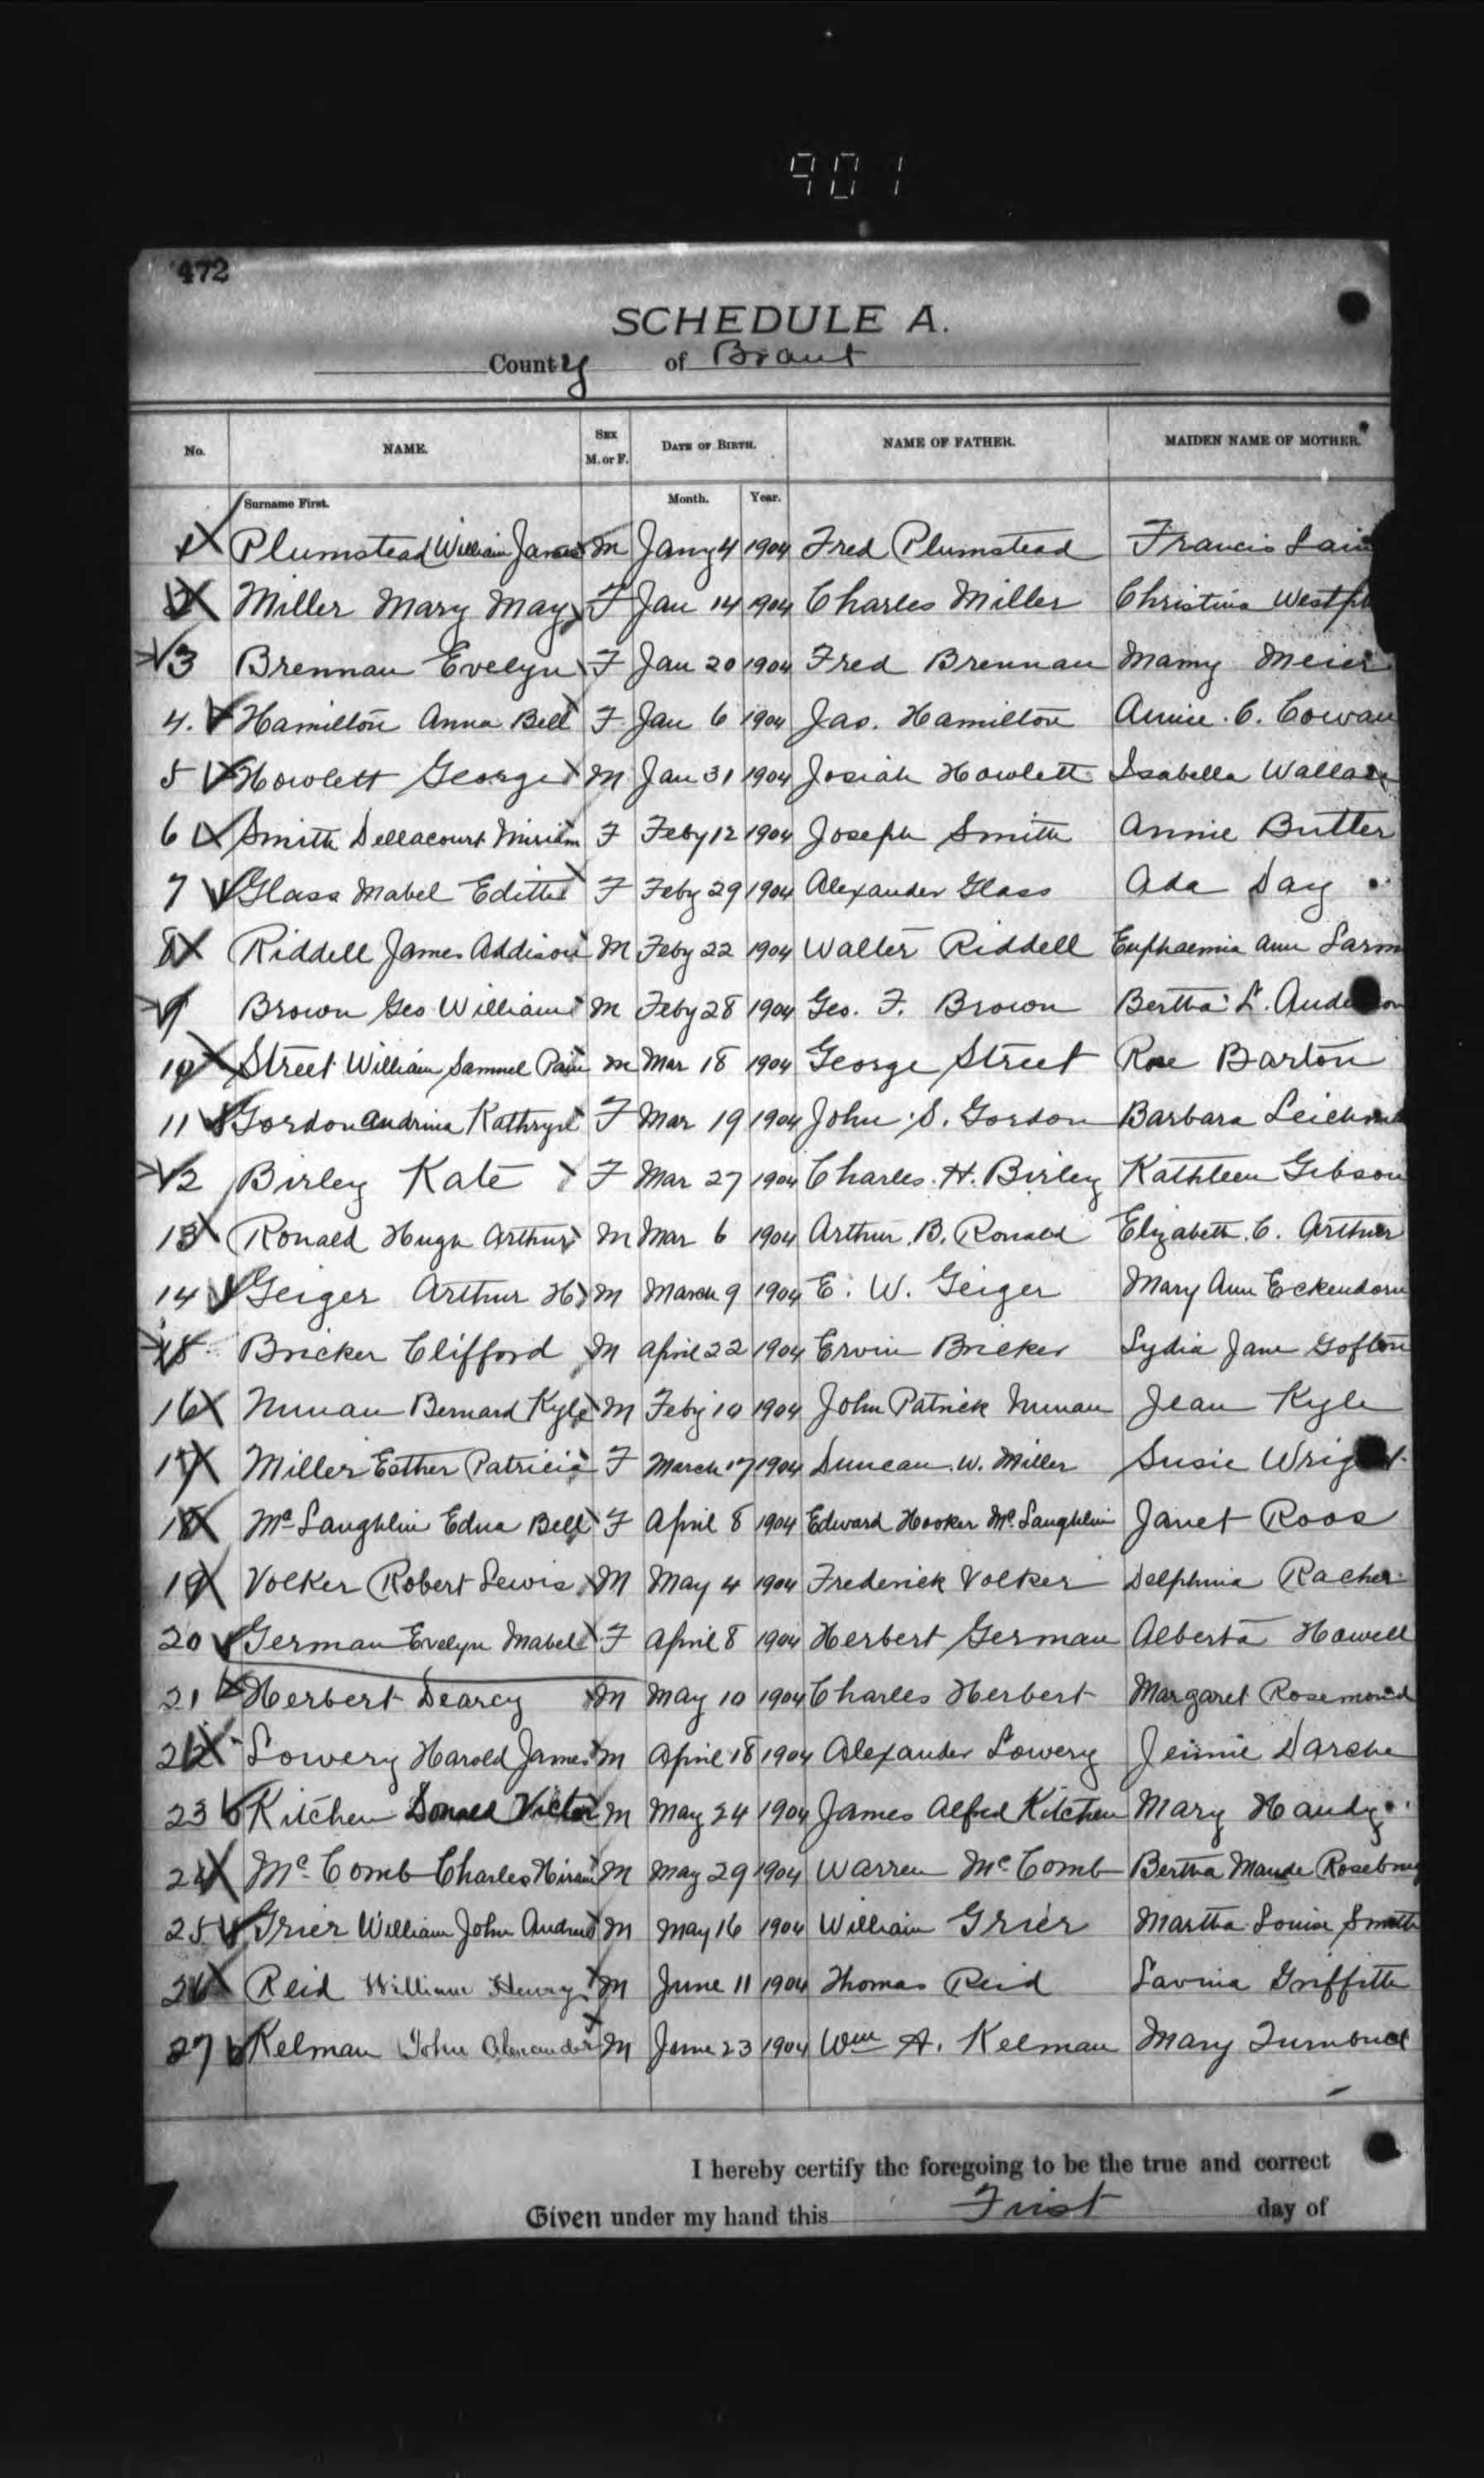 901
472
SCHEDULE A.
County of Brant
No. NAME. Sex M. or F. DATE OF BIRTH. NAME OF FATHER. MAIDEN NAME OF MOTHER.
Surname First. Month. Year.
1 Plumstead William James M Jany 4 1904 Fred Plumstead Francis
2 Miller Mary May F Jan 14 1904 Charles Miller Christina Westph
3 Brennan Evelyn F Jan 20 1904 Fred Brennan Mamy Meier
4. Hamilton Anna Bell F Jan 6 1904 Jas. Hamilton Annie. C. Cowan
5 Howlett George M Jan 31 1904 Josiah Howlett Isabella Wallace
6 Smith Dellacourt Miriam F Feby 12 1904 Joseph Smith Annie Butler
7 Glass Mabel Edith F Feby 29 1904 Alexander Glass Ada Day
8 Riddell James Addison M Feby 22 1904 Walter Riddell Euphaemia Ann
9 Brown Geo William M Feby 28 1904 Geo. F. Brown Bertha L. Anderson
10 Street William Samuel M Mar 18 1904 George Street Rose Barton
11 Gordon Andrina Kathryn F Mar 19 1904 John S. Gordon Barbara
12 Birley Kate F Mar 27 1904 Charles. H. Birley Kathleen Gibson
13 Ronald Hugh Arthur M Mar 6 1904 Arthur. B. Ronald Elizabeth. C. Arthur
14 Geiger Arthur H M March 9 1904 E. W. Geiger Mary Ann Eckendorn
15 Bricker Clifford M April 22 1904 Ervin Bricker Lydia Jane Gofton
16 Nunan Bernard Kyle M Feby 10 1904 John Patrick Nunan Jean Kyle
17 Miller Esther Patricia F March 17 1904 Duncan. W. Miller Susie Wright
18 McLaughlin Edna Bell F April 8 1904 Edward Hooker McLaughlin Janet Roos
19 Volker Robert Lewis M May 4 1904 Frederick Volker Delphina Racher
20 German Evelyn Mabel F April 8 1904 Herbert German Alberta Howell
21 Herbert Dearcy M May 10 1904 Charles Herbert Margaret Rosemond
22 Lowery Harold James M April 18 1904 Alexander Lowery Jennie Darche
23 Kitchen Donald Victor M May 24 1904 James Alfred Kitchen Mary Handy
24 McComb Charles Hiram M May 29 1904 Warren McComb Bertha Maude
25 Grier William John Andrew M May 16 1904 William Grier Martha Louise Smith
26 Reid William Henry M June 11 1904 Thomas Reid Lavina Griffith
27 Kelman John Alexander M June 23 1904 Wm A. Kelman Mary Turnbull
I hereby certify the foregoing to be the true and correct
Given under my hand this First day of